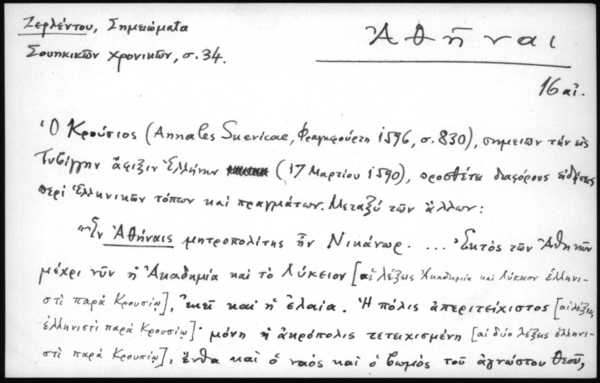 Ζερλέντου, Σημειώματα
Σουηκικῶν χρονικῶν, σ. 34.
Ἀθῆναι
16 αἰ.
Ὁ Κρούσιος (Annales Suevicae, Φραγκφούρτη 1596, σ. 830), σημειῶν τὴν εἰς
Τυβίγγην ἄφιξιν Ἑλλήνων (17 Μαρτίου 1590), προσθέτει διαφόρους εἰδήσεις
περὶ Ἑλληνικῶν τόπων καὶ πραγμάτων. Μεταξὺ τῶν ἄλλων:
"Ἐν Ἀθήναις μητροπολίτης ἦν Νικάνωρ. ... Ἐκτὸς τῶν Ἀθηνῶν
μέχρι νῦν ἡ Ἀκαδημία καὶ τὸ Λύκειον [αἱ λέξεις Ἀκαδημία καὶ Λύκειον ἑλληνι-
στὶ παρὰ Κρουσίῳ], ἐκεῖ καὶ ἡ ἐλαία. Ἡ πόλις ἀπεριτείχιστος [αἱ λέξεις
ἑλληνιστὶ παρὰ Κρουσίῳ]· μόνη ἡ ἀκρόπολις τετειχισμένη [αἱ δύο λέξεις ἑλληνι-
στὶ παρὰ Κρουσίῳ], ἔνθα καὶ ὁ ναὸς καὶ ὁ βωμὸς τοῦ ἀγνώστου Θεοῦ,